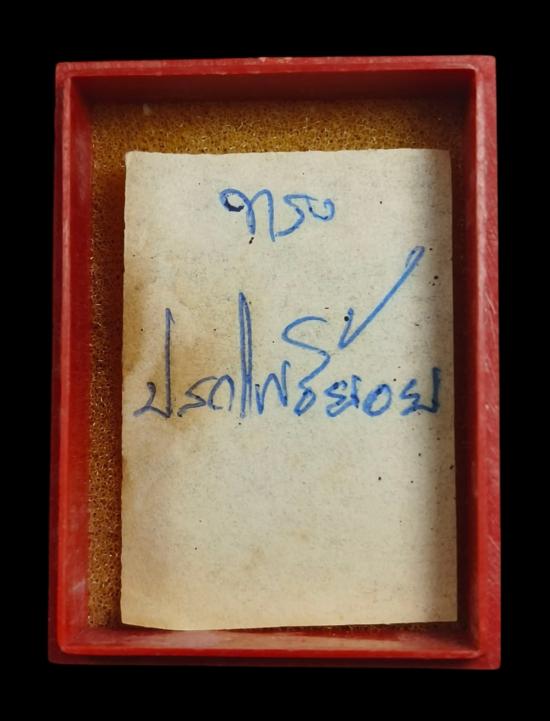 ทรง
ปรกโพธิ์ย้อย